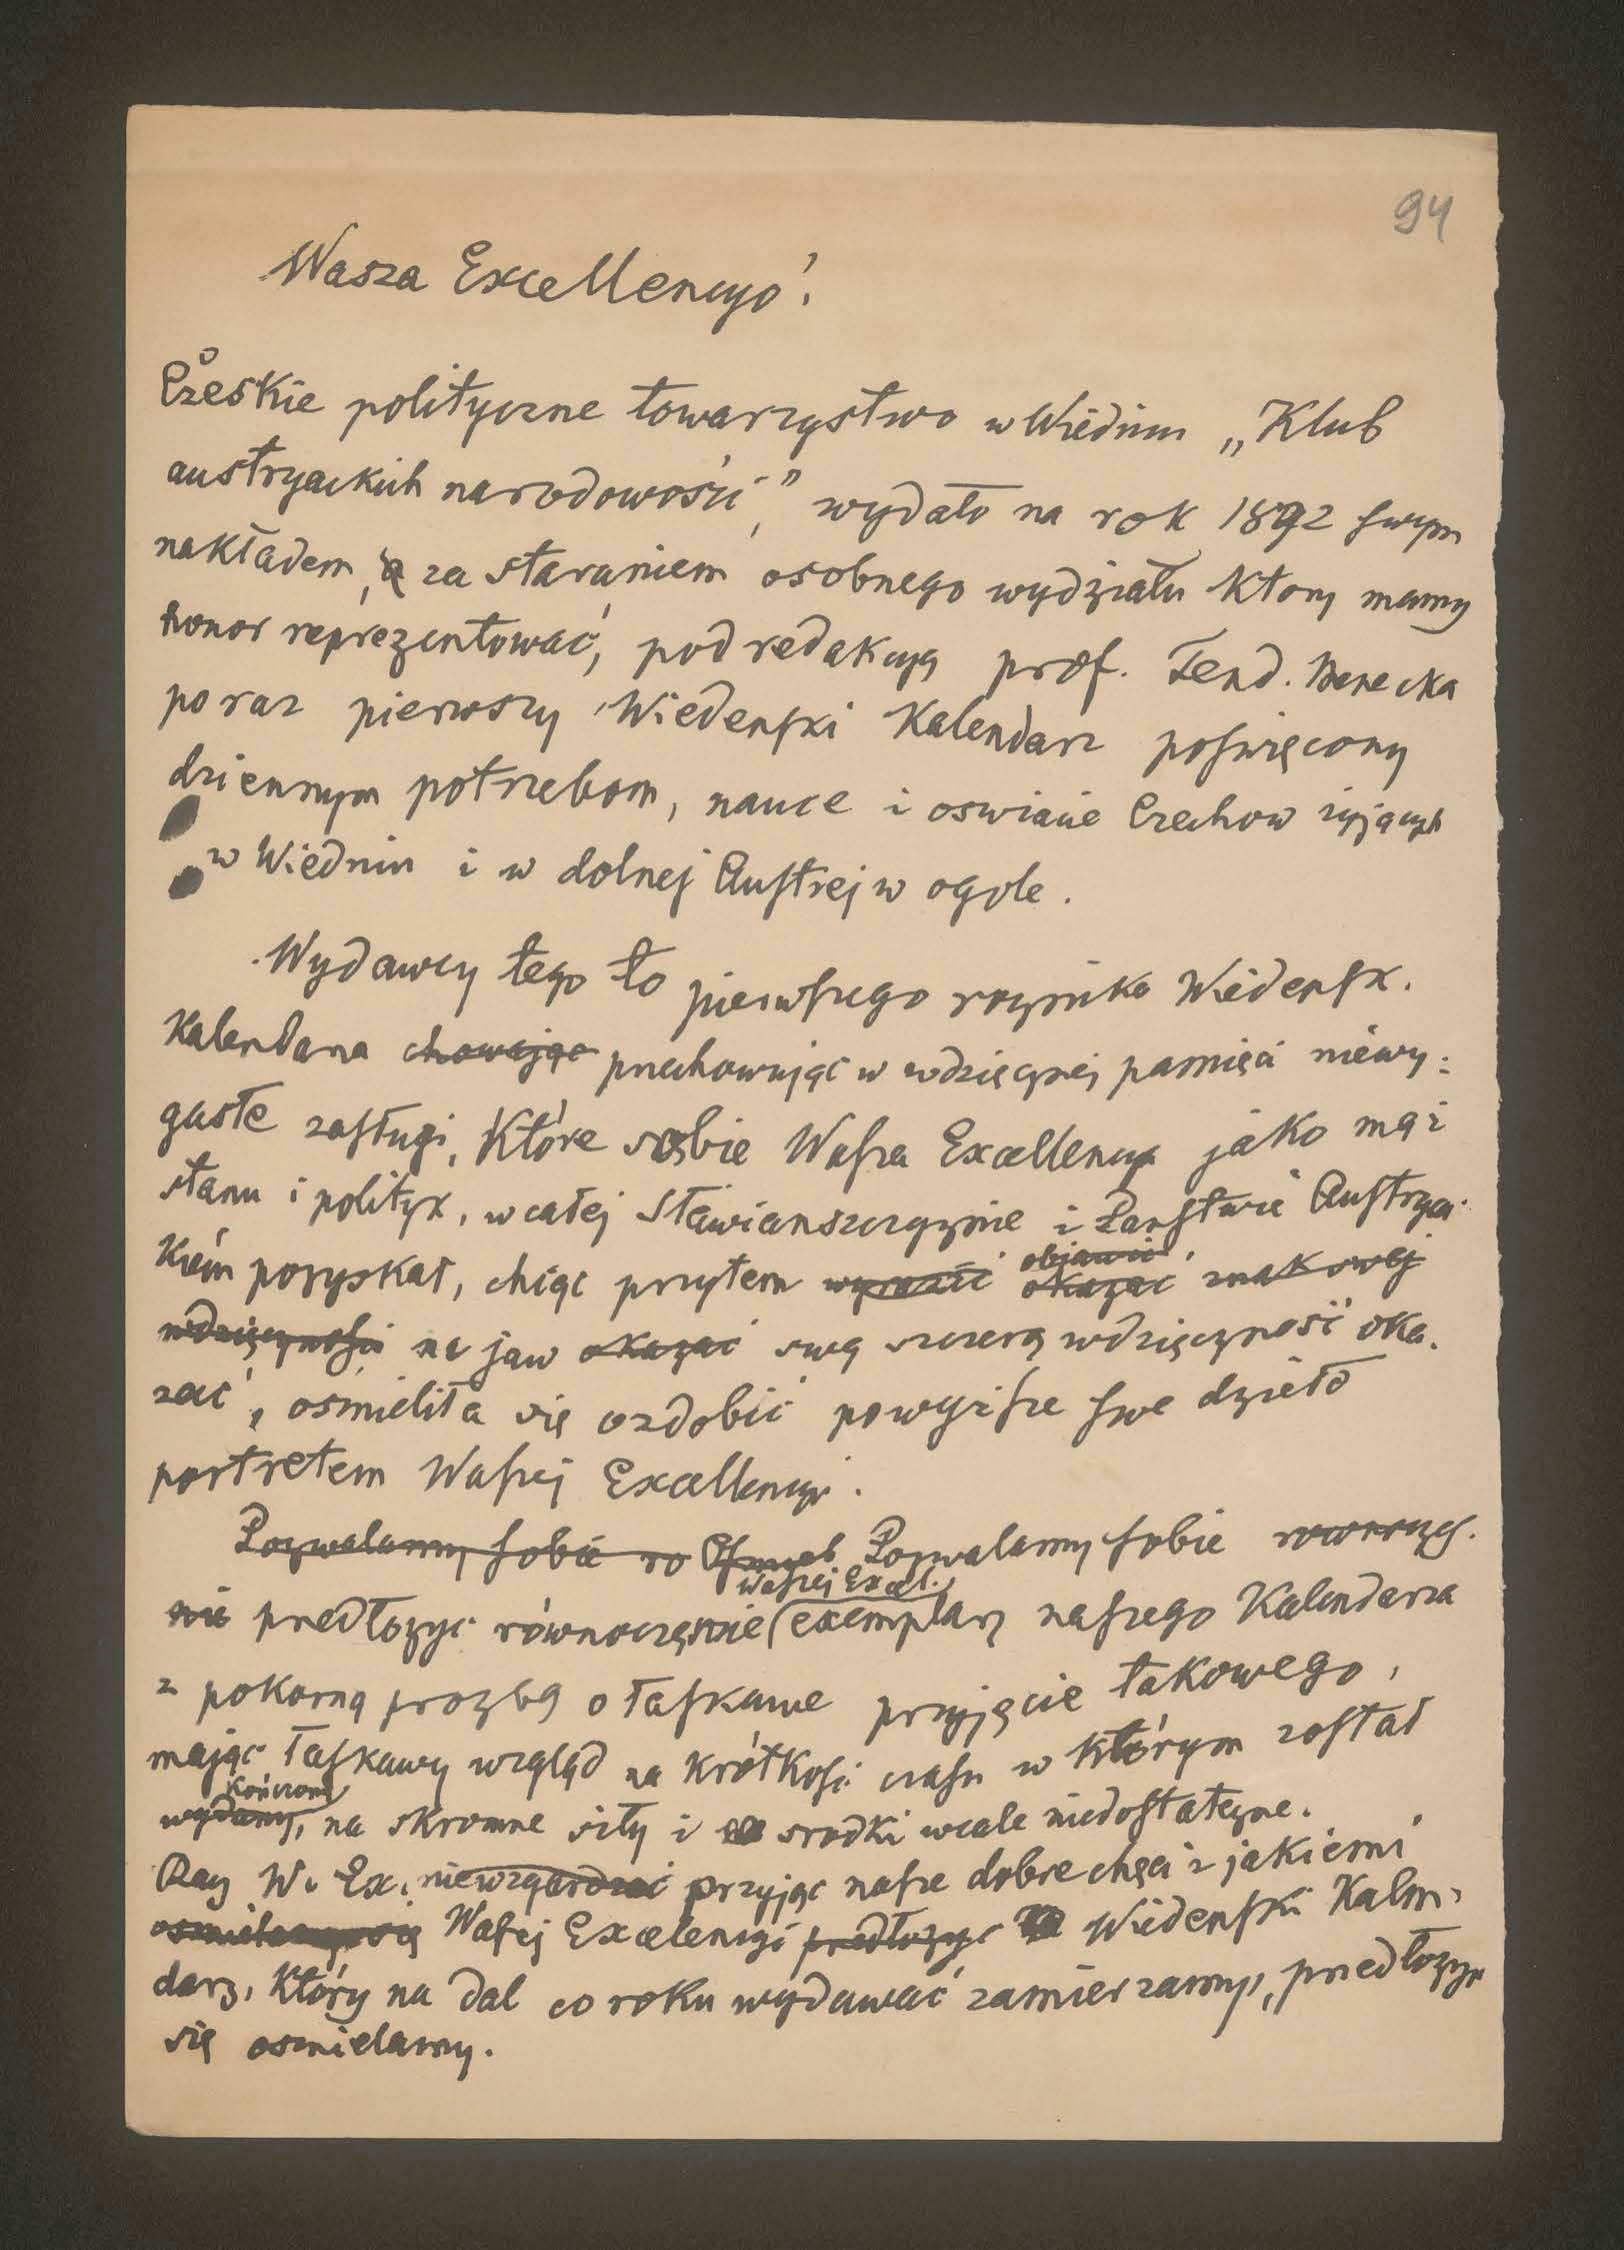 94
Wasza Excellencyo!
Czeskie polityczne towarzystwo w Wiedniu „Klub
austryackich narodowości," wydało na rok 1892 swym
nakładem, za staraniem osobnego wydziału który mamy
honor reprezentować, pod redakcyą prof. Ferd. Menecka
po raz pierwszy Wiedenski Kalendarz poswięcony
dziennym potrzebom, nauce i oswiacie Czechow żyjących
w Wiedniu i w dolnej Austrej w ogole.
Wydawcy tego to pierwszego rocznika Wiedensk.
Kalendarza chowając przechowując w wdzięcznej pamięci niewy-
gasłe zasługi, Które sobie Wasza Excellencya jako mąż
stanu i polityk, w całej Sławianszczyznie i Panstwie Austryac-
Kiem pozyskał, chcąc przytem wyrazić objawić okazać znak swej
wdzięcznosci na jaw okazać swą szczerą wdzięcznosć oka-
zać, osmieliła się ozdobić powyższe swe dzieło
portretem Waszej Excellencyi.
Pozwalamy sobie ro Pozwalamy sobie rownoczes-
nie predłozyc równoczęsnie Waszej Excel. exemplarz naszego Kalendarza
z pokorną prozbą o łaskawe przyjęcie takowego,
mając łaskawy wzgląd na krótkosć czasu w którym został
wydany, kończony na skromne siły i srodki wcale niedostatezne.
Racz W. Ex. niewzgardzać przyjąc nasze dobre chęci z jakiemi
osmielamy się Waszej Excelencyi predłozyc Wiedenski Kalen-
darz, Który na dal co roku wydawać zamierzamy, predłozyc
się osmielamy.